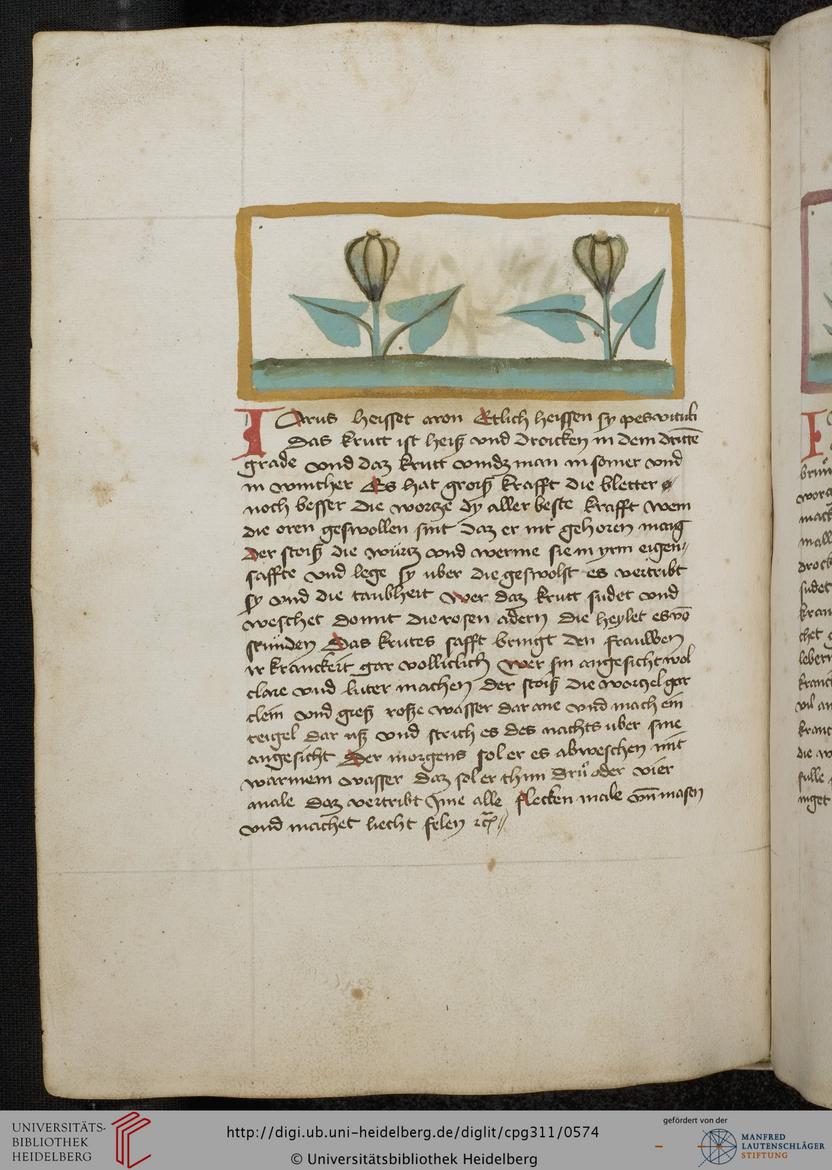 Iarus heisset aron Etlich heissen sy pes vituli
Das krutt ist heiß vnd droicken in dem dritte
grade vnd daz krutt vindz man in somer vnd
in winther Es hat groiß krafft die bletter
noch besser die wortze dy aller beste krafft wem
die oren geswollen sint daz er nit gehoren mang
der stoiß die würtz vnd werme sie in yrm eigen
saffte vnd lege sy uber die geswolst es vertribt
sy vnd die taubheit wer daz krutt sudet vnd
weschet domit die rosen adern die heylet es vō
stunden Das krutes safft bringt den frauwen
ir kranckeit gar volliclich wer sin angesicht wol
clare vnd luter machen der stoiß die wortzel gar
clein vnd gieß roße wasser dar ane vnd mach ein
teigel dar uß vnd strich es des nachts uber sine
angesicht Der morgens sol er es abweschen mit
warmem wasser daz sol er thun drü oder vier
male daz vertribt Ime alle flecken male vn masen
vnd machet liecht felen
UNIVERSITÄTS-
BIBLIOTHEK
HEIDELBERG
http://digi.ub.uni-heidelberg.de/diglit/cpg311/0574
© Universitätsbibliothek Heidelberg
gefördert von der
MANFRED
LAUTENSCHLÄGER
STIFTUNG